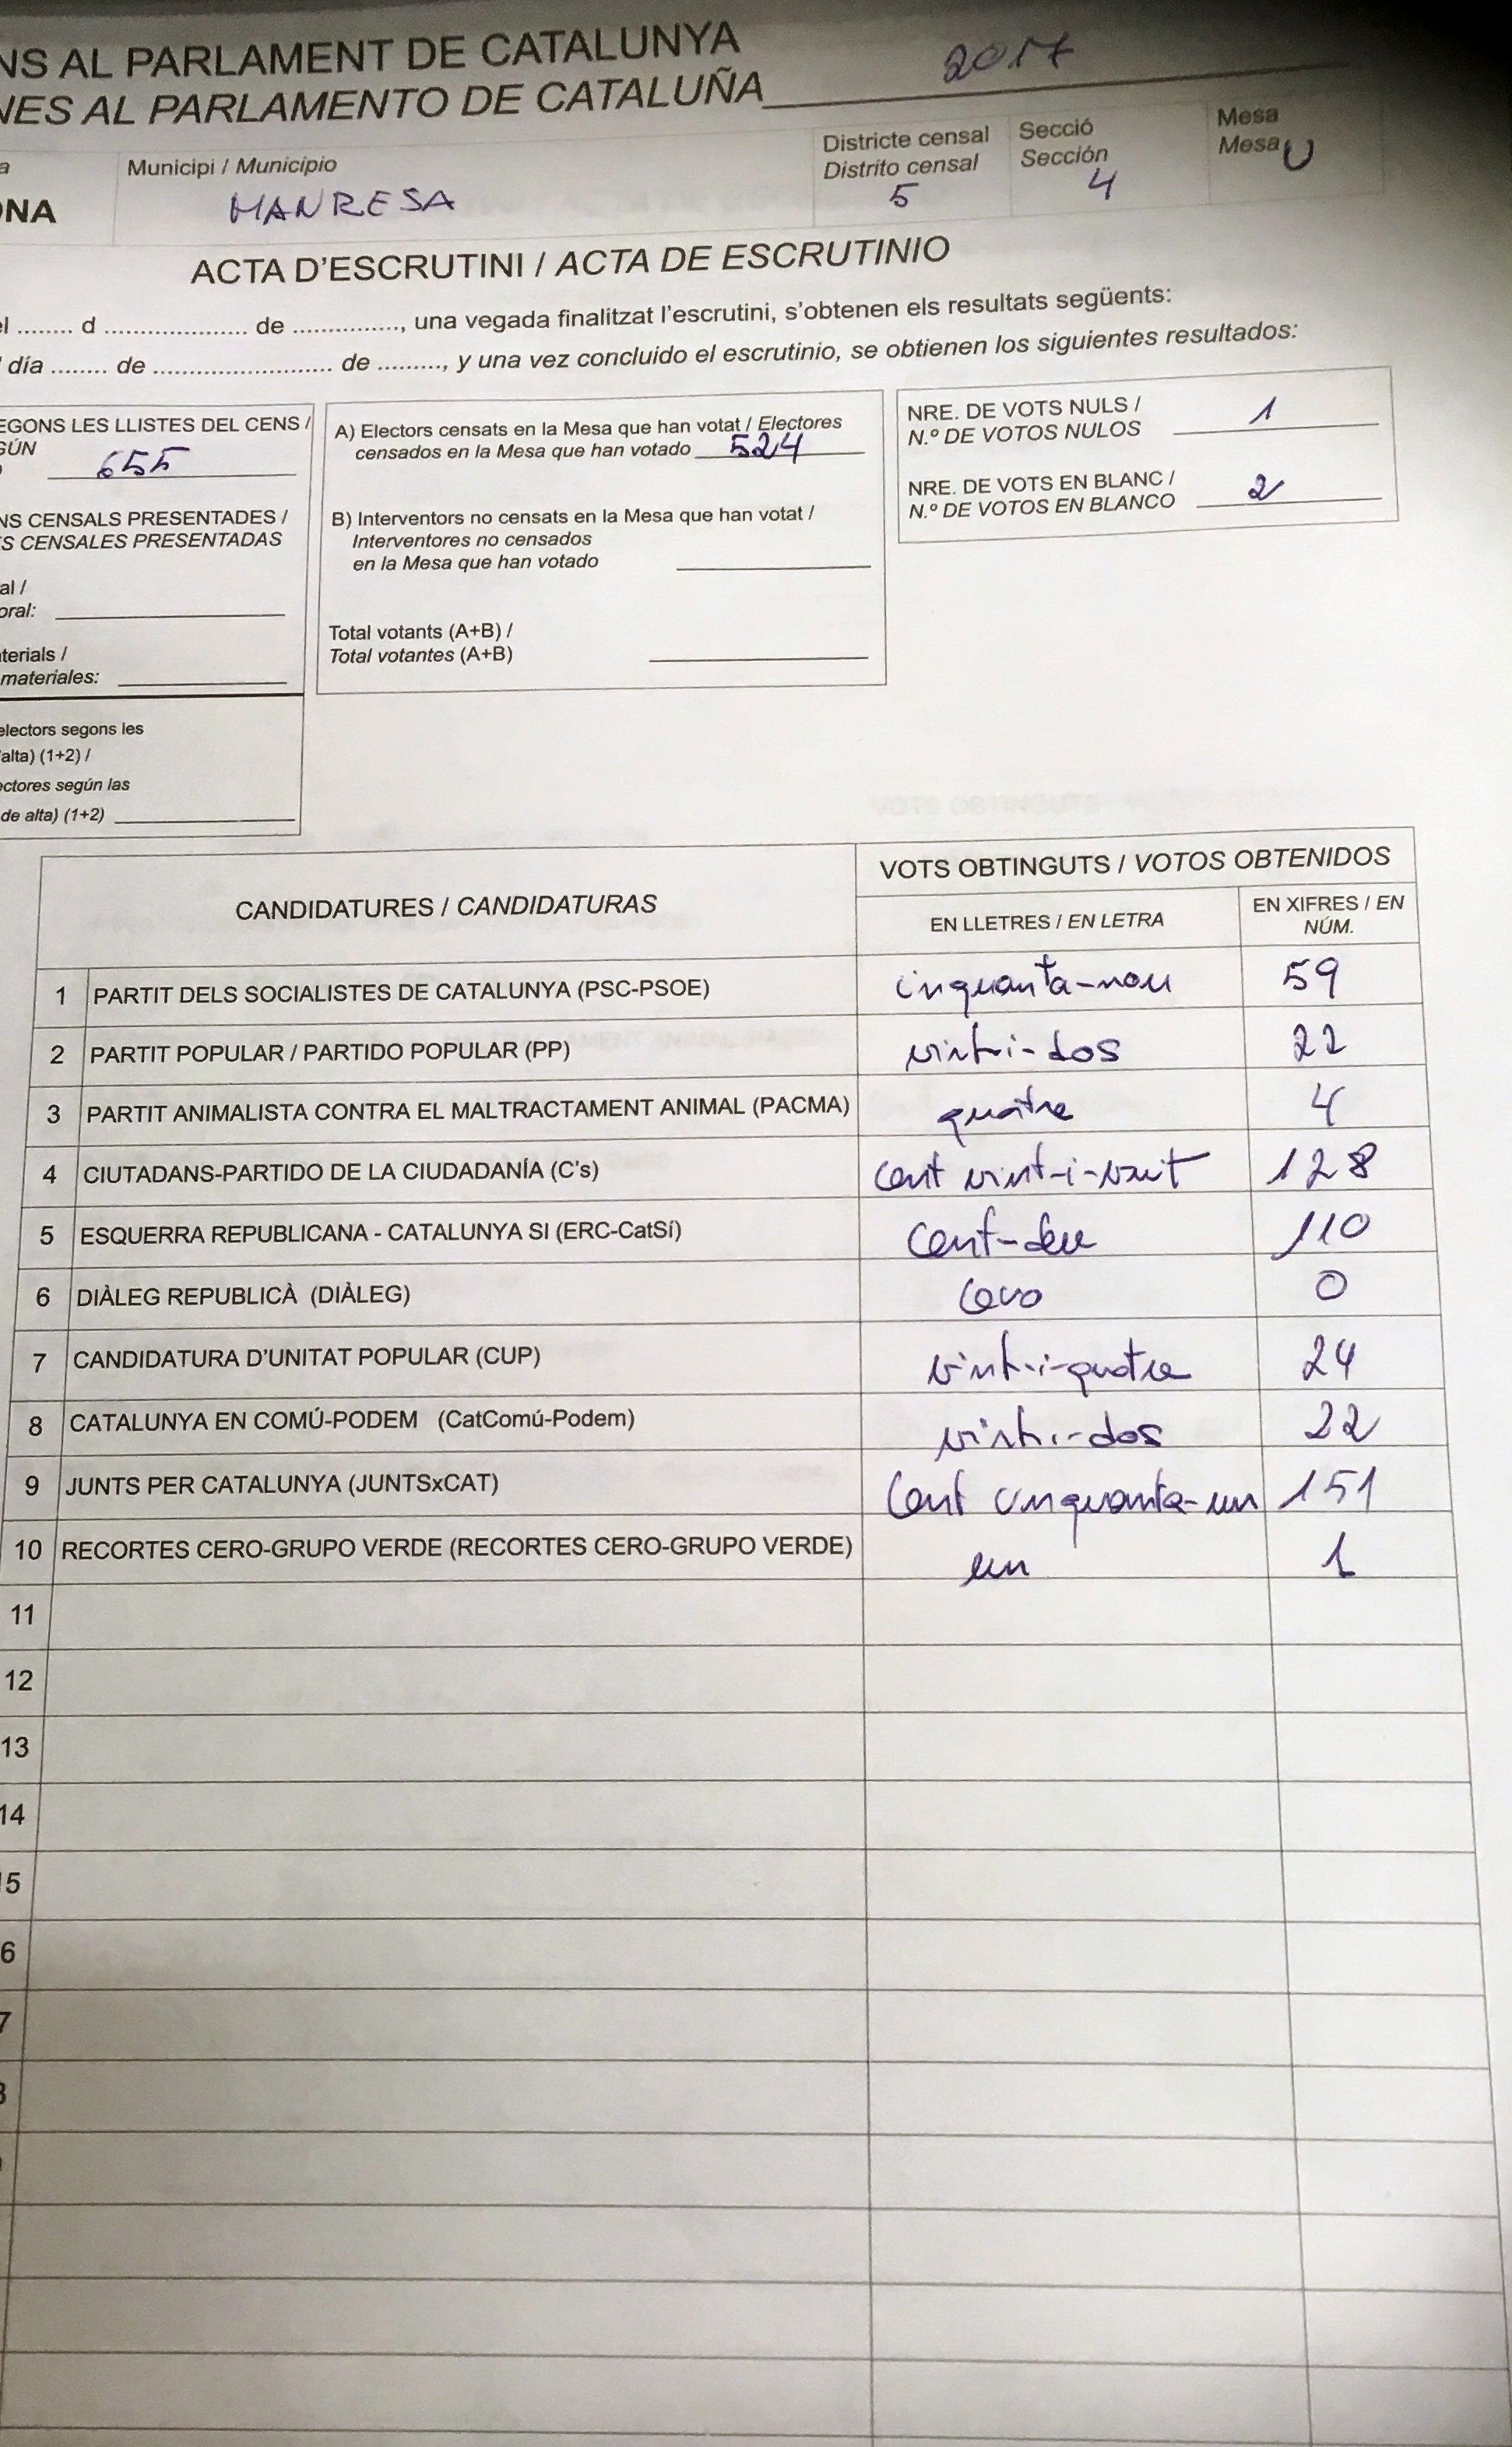 NS AL PARLAMENT DE CATALUNYA
NES AL PARLAMENTO DE CATALUÑA 2017
a Municipi / Municipio Districte censal Secció Mesa
Distrito censal Sección Mesa U
ONA MANRESA 5 4
ACTA D'ESCRUTINI / ACTA DE ESCRUTINIO
el ........ d ...................... de ................, una vegada finalitzat l'escrutini, s'obtenen els resultats següents:
día ........ de ........................... de ........., y una vez concluido el escrutinio, se obtienen los siguientes resultados:
EGONS LES LLISTES DEL CENS /
GÚN
655
NS CENSALS PRESENTADES /
S CENSALES PRESENTADAS
al /
oral:
terials /
materiales:
electors segons les
alta) (1+2) /
ectores según las
de alta) (1+2)
A) Electors censats en la Mesa que han votat / Electores
censados en la Mesa que han votado 524
B) Interventors no censats en la Mesa que han votat /
Interventores no censados
en la Mesa que han votado
Total votants (A+B) /
Total votantes (A+B)
NRE. DE VOTS NULS /
N.º DE VOTOS NULOS 1
NRE. DE VOTS EN BLANC /
N.º DE VOTOS EN BLANCO 2
CANDIDATURES / CANDIDATURAS
VOTS OBTINGUTS / VOTOS OBTENIDOS
EN LLETRES / EN LETRA
EN XIFRES / EN
NÚM.
1 PARTIT DELS SOCIALISTES DE CATALUNYA (PSC-PSOE) cinquanta-nou 59
2 PARTIT POPULAR / PARTIDO POPULAR (PP) vint-i-dos 22
3 PARTIT ANIMALISTA CONTRA EL MALTRACTAMENT ANIMAL (PACMA) quatre 4
4 CIUTADANS-PARTIDO DE LA CIUDADANÍA (C's) cent vint-i-vuit 128
5 ESQUERRA REPUBLICANA - CATALUNYA SI (ERC-CatSí) cent-deu 110
6 DIÀLEG REPUBLICÀ (DIÀLEG) Cero 0
7 CANDIDATURA D'UNITAT POPULAR (CUP) vint-i-quatre 24
8 CATALUNYA EN COMÚ-PODEM (CatComú-Podem) vint-i-dos 22
9 JUNTS PER CATALUNYA (JUNTSxCAT) Cent cinquanta-un 151
10 RECORTES CERO-GRUPO VERDE (RECORTES CERO-GRUPO VERDE) un 1
11
12
13
14
15
6
7
8